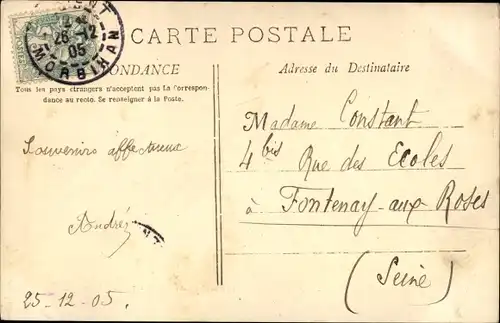 26 -12
05
MORBIHAN
POSTES
CARTE POSTALE
PONDANCE
Tous les pays étrangers n'acceptent pas la Correspon-
dance au recto. Se renseigner à la Poste.
Souvenirs affectueux
André
25-12-05.
Adresse du Destinataire
Madame Constant
4 bis Rue des Ecoles
à Fontenay-aux-Roses
(Seine)